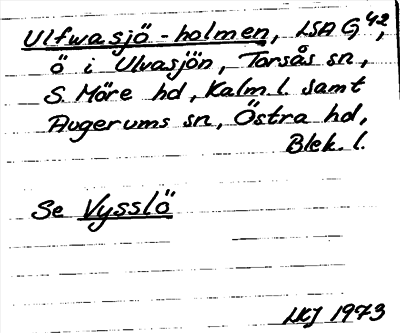 Ulfwasjö-holmen, LSA G 42,
ö i Ulvasjön, Torsås sn,
S. Möre hd, Kalm. l. samt
Augerums sn, Östra hd,
Blek. l.
Se Vysslö
LKJ 1973